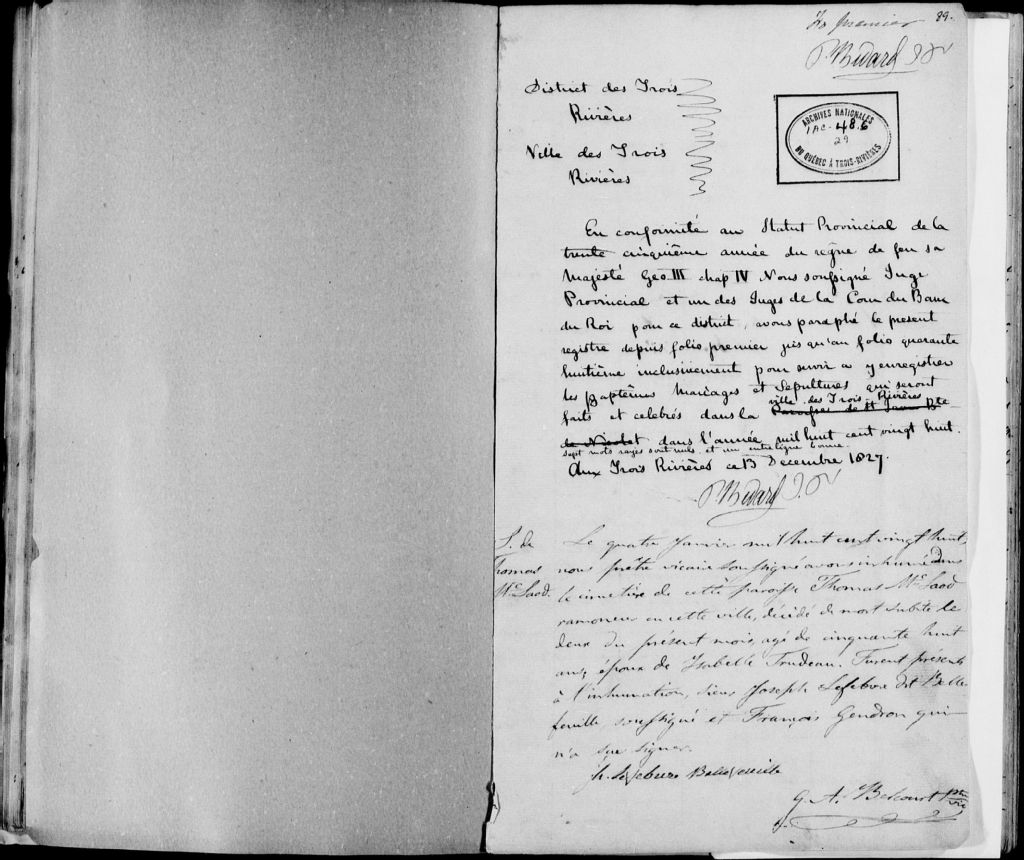 fo premier 89.
P. Bedard J P R
District des Trois
Rivières
Ville des Trois
Rivières
ARCHIVES NATIONALES
1AC-48.6
29
DU QUÉBEC À TROIS-RIVIÈRES
En conformité au Statut Provincial de la
trente cinquième année du règne de feu sa
Majesté Geo III chap IV Nous soussigné Juge
Provincial et un des Juges de la Cour du Banc
du Roi pour ce district, avons paraphé le present
registre depuis folio premier jusqu'au folio quarante
huitième inclusivement pour servir a y enregistrer
les Baptêmes Mariages et Sepultures qui seront
ville des Trois-Rivières
faits et celebrés dans la Paroisse de St Jean Bte
de Nicolet dans l'année mil huit cent vingt huit.
sept mots rayés sont nuls et un interligne bonne.
Aux Trois Rivières ce 13 Decembre 1827.
P. Bedard
S. de
Thomas
McLaod.
Le quatre Janvier mil huit cent vingt huit,
nous prêtre vicaire soussigné avons inhumé dans
le cimetière de cette paroisse Thomas McLaod
ramoneur en cette ville, décédé de mort subite le
deux du présent mois, agé de cinquante huit
ans, époux de Isabelle Trudeau. Furent présents
à l'inhumation, sieur Joseph Lefebvre dit Belle
feuille, soussigné et François Gendron qui
n'a sçu signer.
Jh. Lefebvre Bellefeuille
G. A. Belcourt ptre
vic